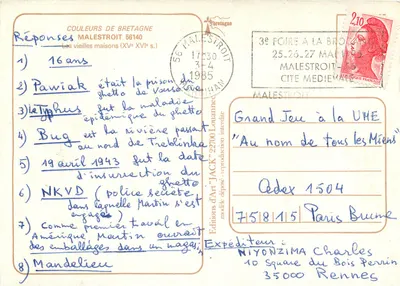 COULEURS DE BRETAGNE
MALESTROIT 56140
Les vieilles maisons (XVᵉ XVIᵉ s.)
Réponses
1) 16 ans
2) Pawiak était la prison du
ghetto de Varsovie
3) Le Typhus fut la maladie
épidémique du ghetto
4) Bug est la rivière passant
au nord de Treblinka
5) 19 avril 1943 fut la date
d'insurrection du
ghetto
6) NKVD (police secrète
dans laquelle Martin s'est
engagé)
7) Comme premier travail en
Amérique, Martin ouvrait
des emballages dans un magasin
8) Mandelieu
56 MALESTROIT
17H30
3-4
1985
MORBIHAN
3e FOIRE A LA BRO
25.26.27 MAI
MALESTROIT
CITE MEDIEVALE
MALESTROIT
2,10
Edition d'Art "JACK" 22700 Louannec
modèle déposé reproduction interdite
Grand Jeu à la UNE
"Au nom de tous les Miens"
Cedex 1504
75815 Paris Brune
Expéditeur:
NIYONZIMA Charles
10 Square du Bois Perrin
35000 Rennes